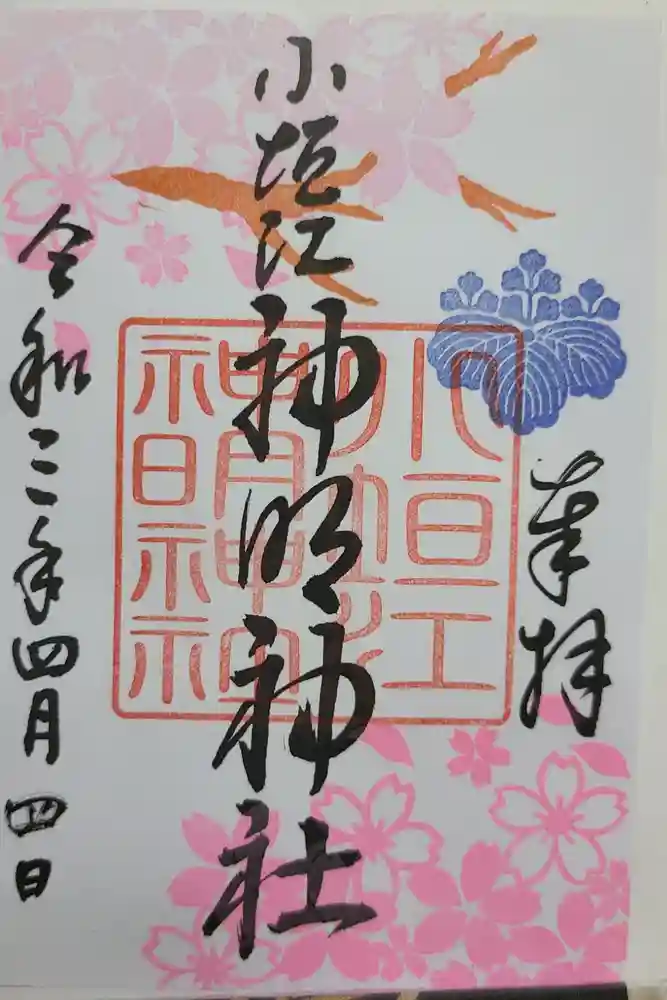 奉拝
小垣江
神明神社
令和三年四月四日
小垣江
神明神社